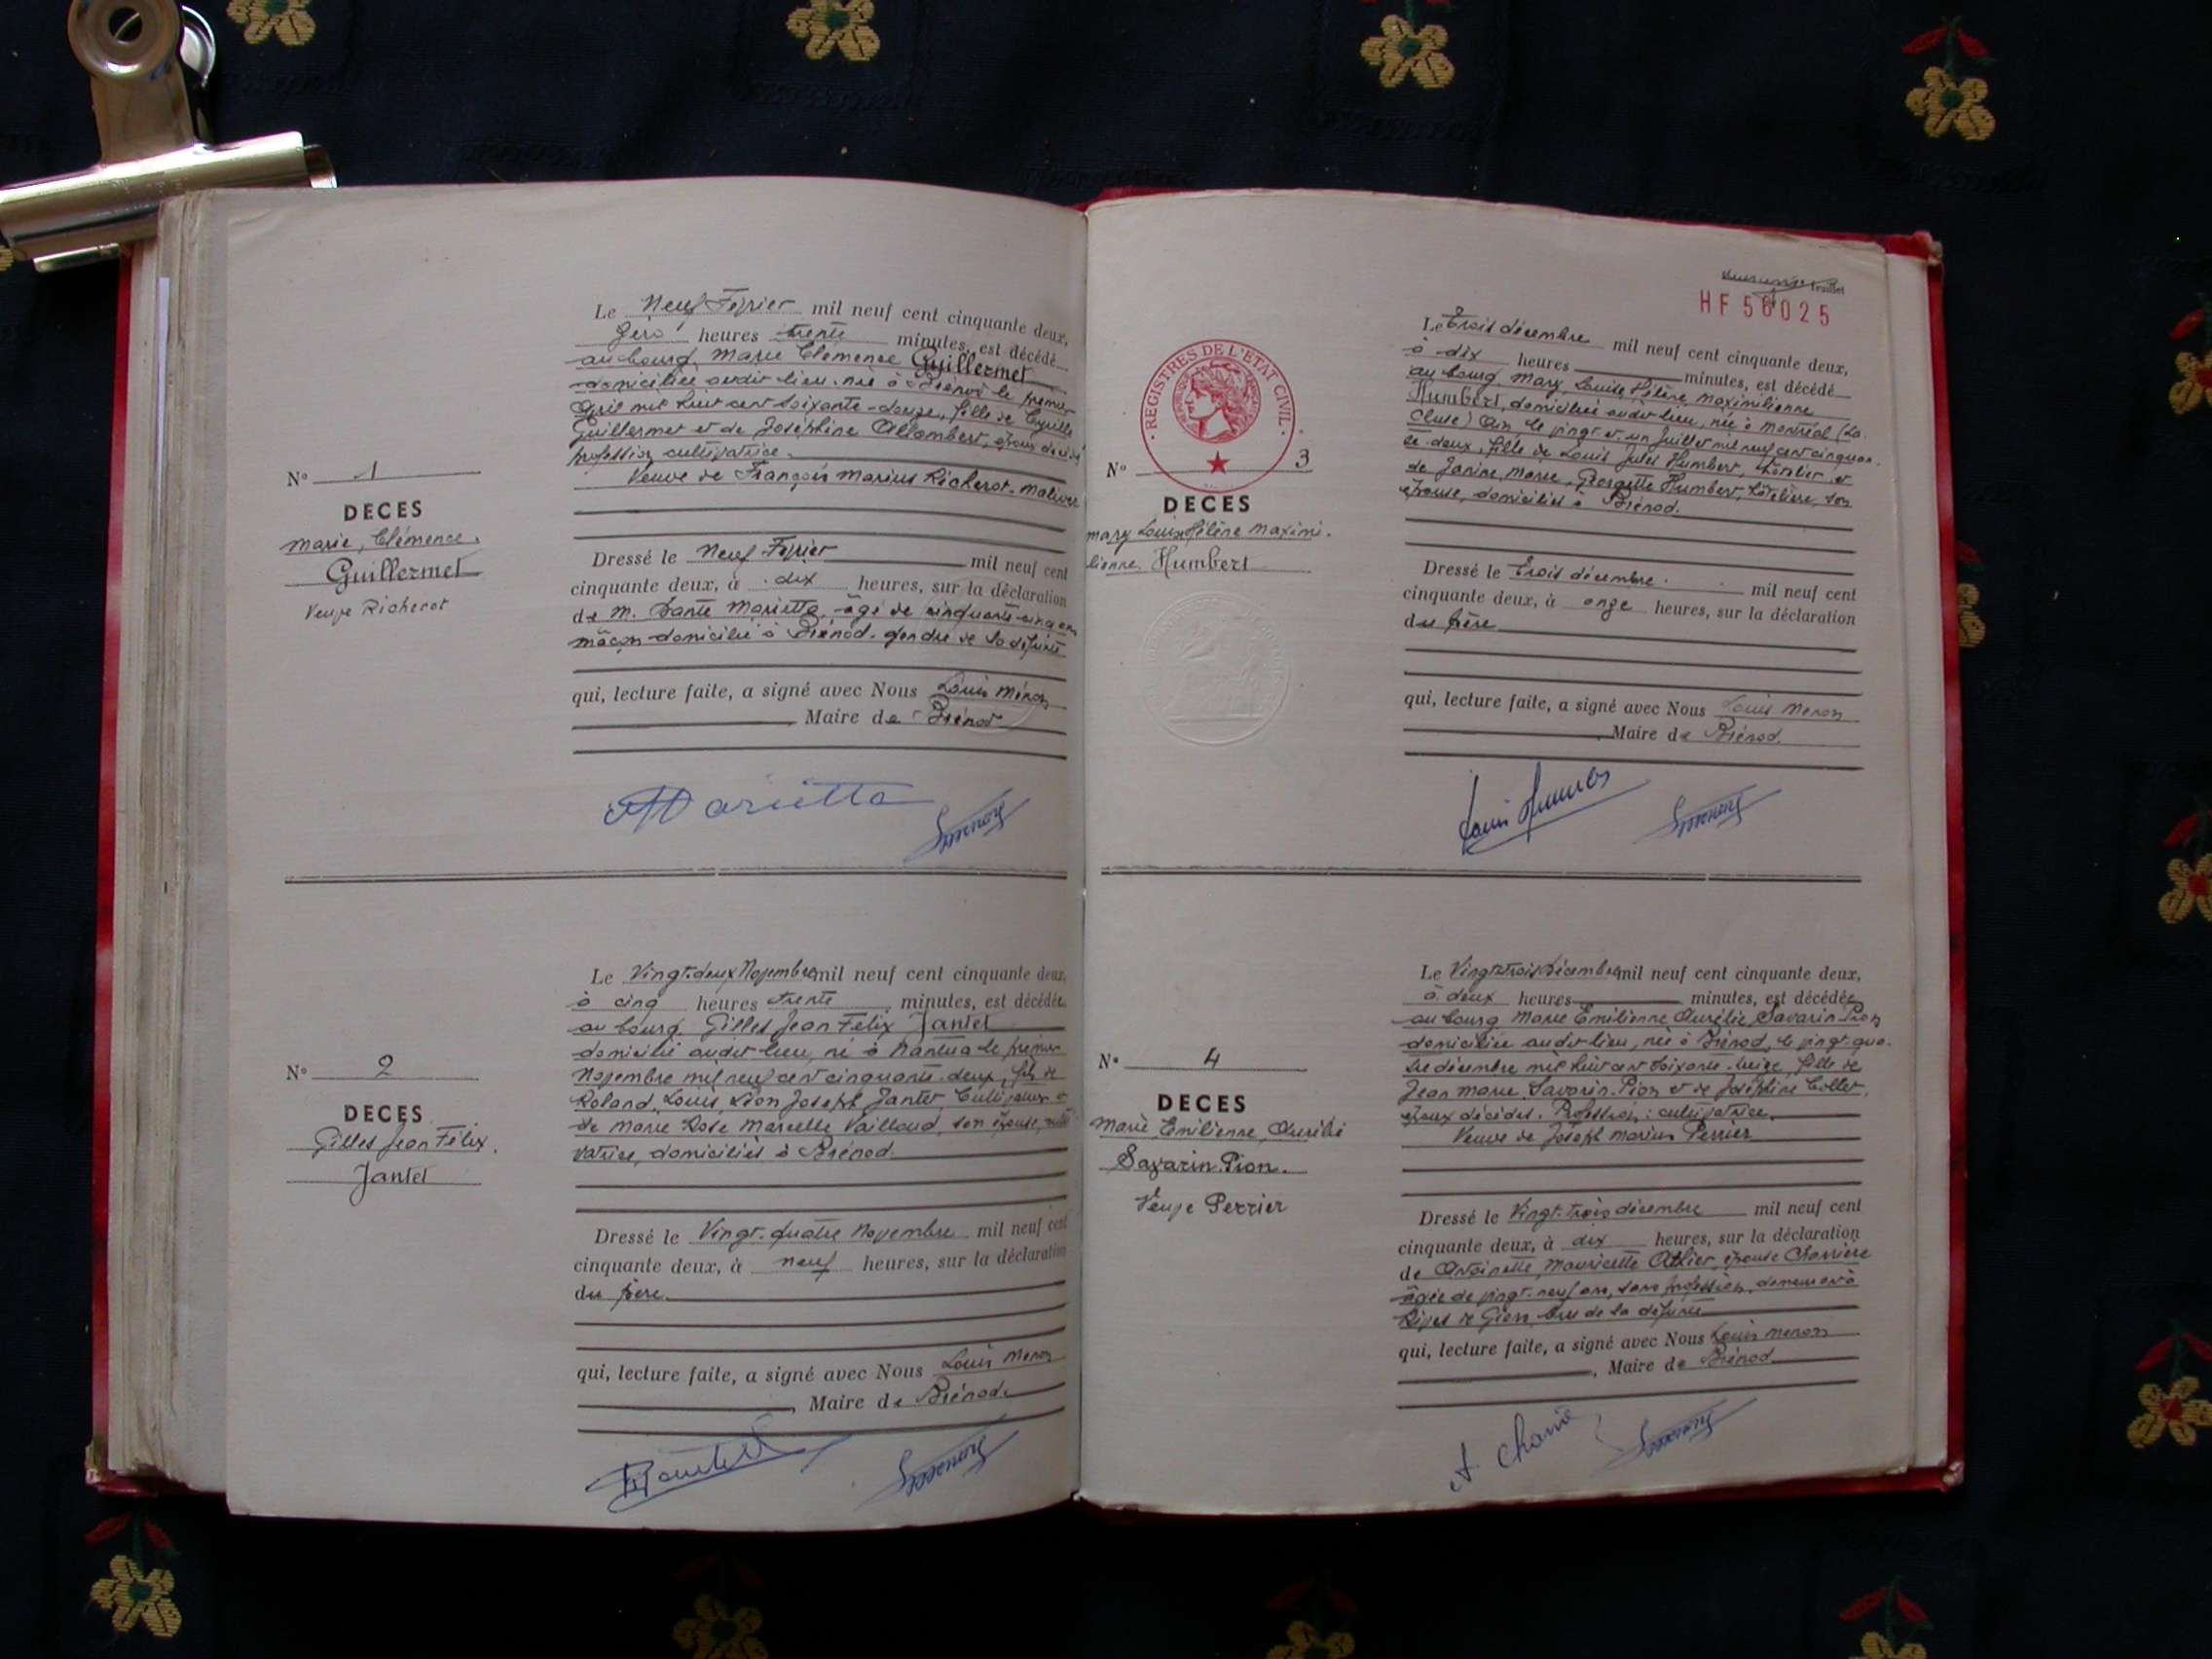 Le Neuf Février mil neuf cent cinquante deux,
Zéro heures trente minutes, est décédé
au bourg, Marie Clémence Guillermet
domiciliée audit lieu, née à Brénod le premier
Avril mil huit cent soixante-douze, fille de Cyrille
Guillermet et de Joséphine Allombert, époux décédés
profession cultivatrice.
Veuve de François Marius Richerot
N° 1
DECES
Marie, Clémence.
Guillermet
Veuve Richerot
Dressé le Neuf Février mil neuf cent
cinquante deux, à dix heures, sur la déclaration
de M. Santé Marietta, âgé de cinquante-cinq ans
mâçon domicilié à Brénod, gendre de la défunte
qui, lecture faite, a signé avec Nous Louis Ménon
Maire de Brénod
Marietta
Le Vingt-deux Novembre mil neuf cent cinquante deux,
à cinq heures trente minutes, est décédée
au bourg, Gilles Jean Félix Jantet
domicilié audit lieu, né à Nantua le premier
Novembre mil neuf cent cinquante-deux, fils de
Roland, Louis, Léon Joseph Jantet, Cultivateur et
de Marie Rose Marcelle Vaillaud, son épouse, culti
vatrice, domiciliés à Brénod.
N° 2
DECES
Gilles Jean Félix.
Jantet
Dressé le Vingt-quatre Novembre mil neuf cent
cinquante deux, à neuf heures, sur la déclaration
du père.
qui, lecture faite, a signé avec Nous Louis Menon
Maire de Brénod.
Feuillet
HF 56025
REGISTRES DE L'ETAT CIVIL
Le Trois décembre mil neuf cent cinquante deux,
à dix heures minutes, est décédé
au bourg Mary Louise Hélène Maximilienne
Humbert, domiciliée audit lieu, née à Montréal (La
Cluse) Ain, le vingt et un Juillet mil neuf cent cinquan-
te-deux, fille de Louis Jules Humbert, hôtelier et
de Janine, Marie, Georgette Humbert, hôtelière, son
épouse, domiciliés à Brénod.
N° 3
DECES
Mary Louise Hélène Maximi-
lienne Humbert
Dressé le Trois décembre mil neuf cent
cinquante deux, à onze heures, sur la déclaration
du père
qui, lecture faite, a signé avec Nous Louis Menon
Maire de Brénod.
Louis Humbert
Le Vingt-trois Décembre mil neuf cent cinquante deux,
à deux heures minutes, est décédée
au bourg Marie Emilienne Aurélie Savarin-Pion
domiciliée audit lieu, née à Brénod, le vingt-qua-
tre décembre mil huit cent soixante-treize, fille de
Jean Marie Savarin-Pion et de Joséphine Collet,
époux décédés. Profession : cultivatrice.
Veuve de Joseph Marius Perrier
N° 4
DECES
Marie, Emilienne, Aurélie
Savarin-Pion.
Veuve Perrier
Dressé le Vingt-trois décembre mil neuf cent
cinquante deux, à dix heures, sur la déclaration
de Antoinette, Mauricette épouse Charrière
âgée de vingt-neuf ans, sans profession, demeurant à
Rives de Giers, bru de la défunte
qui, lecture faite, a signé avec Nous Louis Menon
Maire de Brénod